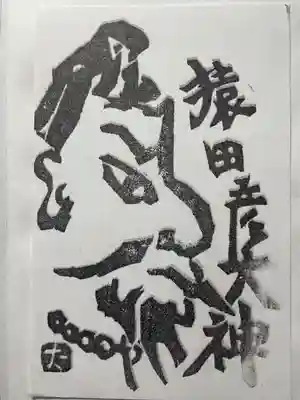 猿田彦大神